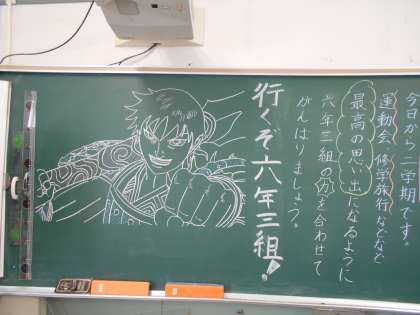 今日から二学期です
運動会、修学旅行などなど
最高の思い出になるように
六年三組の力を合わせて
がんばりましょう。
行くぞ六年三組！